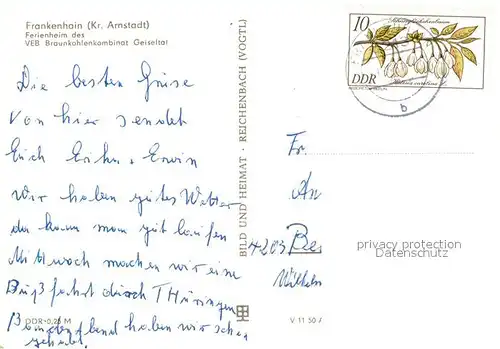 Frankenhain (Kr. Arnstadt)
Ferienheim des
VEB Braunkohlenkombinat Geiseltal
Die besten Grüse
von hier sendet
Euch Erwin
Wir haben gutes Wetter
da kann man gut laufen
Mittwoch machen wir eine
durch THüringen
haben wir schon
gehabt.
DDR-0,25 M
BILD UND HEIMAT · REICHENBACH (VOGTL)
V 11 50
10
DDR
b
Fr.
An
4203
Wilhelm
privacy protection
Datenschutz